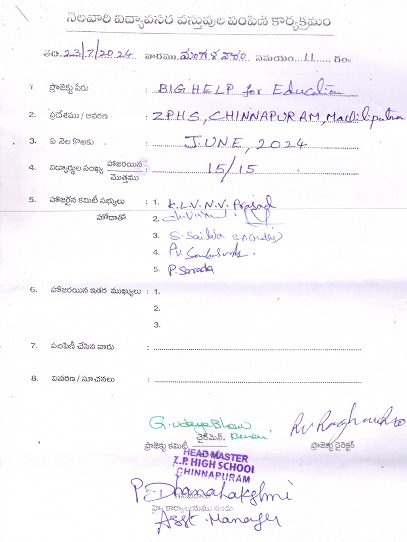 నెలవారీ విద్యావసర వస్తువుల పంపిణి కార్యక్రమం
తేది 23/7/2024 వారము మంగళవారం సమయం 11 గం
1. ప్రాజెక్టు పేరు : BIG HELP for Education
2. ప్రదేశము / ఆవరణ : ZPHS, CHINNAPURAM,
3. ఏ నెల కొఱకు : JUNE, 2024
4. విద్యార్థుల సంఖ్య హాజరయిన / మొత్తము : 15/15
5. హాజరైన కమిటీ సభ్యులు : 1. K.L.V.N.V. Prasad
హోదాతో 2.
3. S. Sailaja
4. P.V.
5. P. Sarada
6. హాజరయిన ఇతర ముఖ్యులు : 1.
2.
3.
7. పంపిణీ చేసిన వారు :
8. వివరణ / సూచనలు :
G. Udaya Bhanu
ప్రాజెక్టు కమిటీ చైర్‌మెన్. ప్రాజెక్టు డైరెక్టర్
HEAD MASTER
Z.P. HIGH SCHOOL
CHINNAPURAM
P. Dhanalakshmi
Asst. Manager